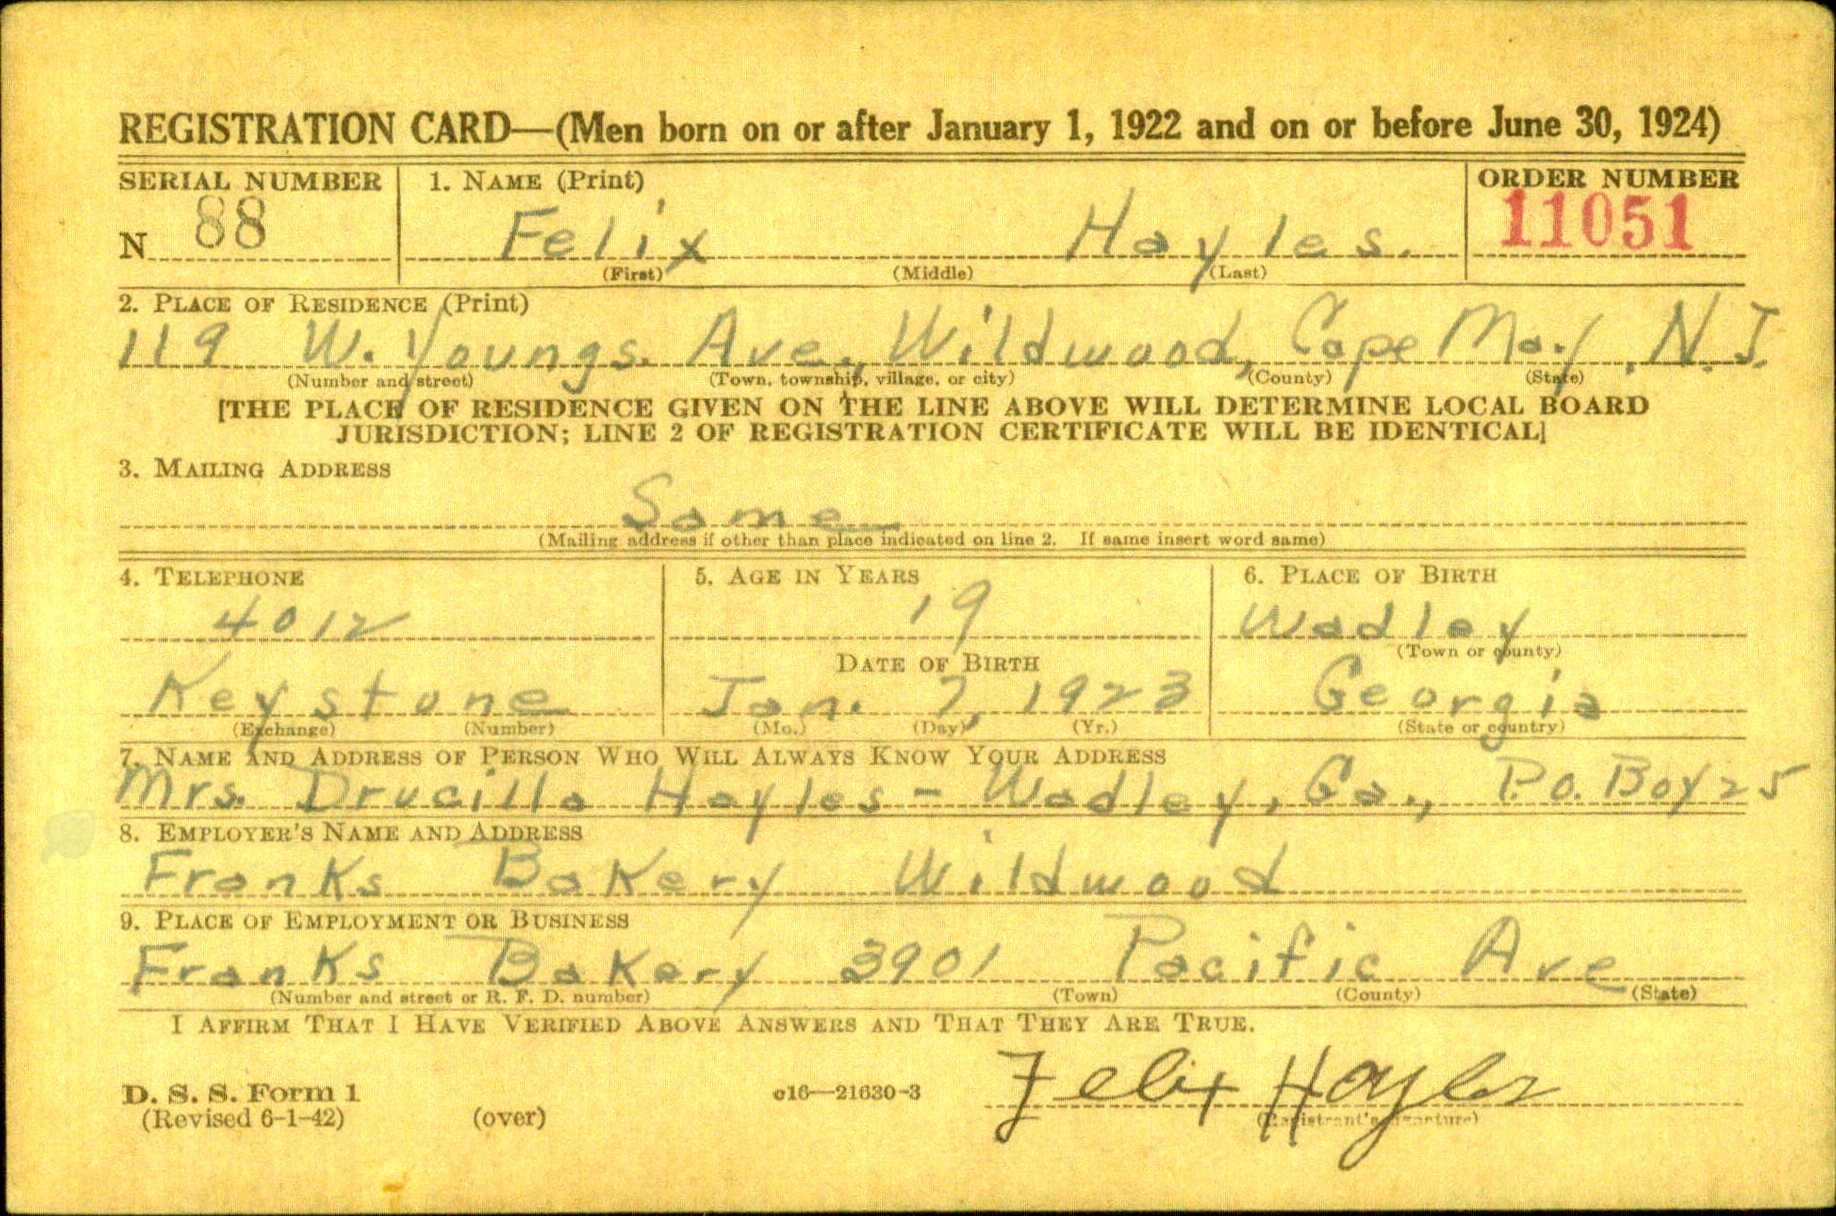 REGISTRATION CARD—(Men born on or after January 1, 1922 and on or before June 30, 1924)
SERIAL NUMBER 1. NAME (Print) ORDER NUMBER
N 88 Felix Hayles. 11051
(First) (Middle) (Last)
2. PLACE OF RESIDENCE (Print)
119 W. Youngs. Ave., Wildwood, Cape May, N.J.
(Number and street) (Town, township, village, or city) (County) (State)
[THE PLACE OF RESIDENCE GIVEN ON THE LINE ABOVE WILL DETERMINE LOCAL BOARD
JURISDICTION; LINE 2 OF REGISTRATION CERTIFICATE WILL BE IDENTICAL]
3. MAILING ADDRESS
Same
(Mailing address if other than place indicated on line 2. If same insert word same)
4. TELEPHONE 5. AGE IN YEARS 6. PLACE OF BIRTH
4012 19 Wadley
(Town or county)
DATE OF BIRTH
Keystone Jan. 7, 1923 Georgia
(Exchange) (Number) (Mo.) (Day) (Yr.) (State or country)
7. NAME AND ADDRESS OF PERSON WHO WILL ALWAYS KNOW YOUR ADDRESS
Mrs. Drucilla Hayles - Wadley, Ga., P.O. Boy 25
8. EMPLOYER'S NAME AND ADDRESS
Franks Bakery Wildwood
9. PLACE OF EMPLOYMENT OR BUSINESS
Franks Bakery 3901 Pacific Ave
(Number and street or R. F. D. number) (Town) (County) (State)
I AFFIRM THAT I HAVE VERIFIED ABOVE ANSWERS AND THAT THEY ARE TRUE.
D. S. S. Form 1 c16—21630-3 Felix Hayles
(Revised 6-1-42) (over) (Registrant's signature)